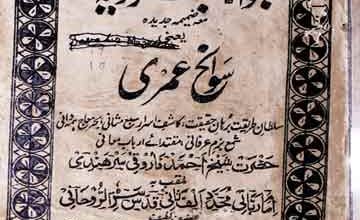 معہ ضمیمہ جدیدہ
یعنی
سوانح عمری
سلطان طریقت برہان حقیقت کاشف اسرار سبع مثانی
شمع بزم عرفانی مقتدائے ارباب معانی
حضرت شیخ احمد فاروقی سرہندی
ملقب بہ
امام ربانی مجدد الف ثانی قدس سرہ النورانی